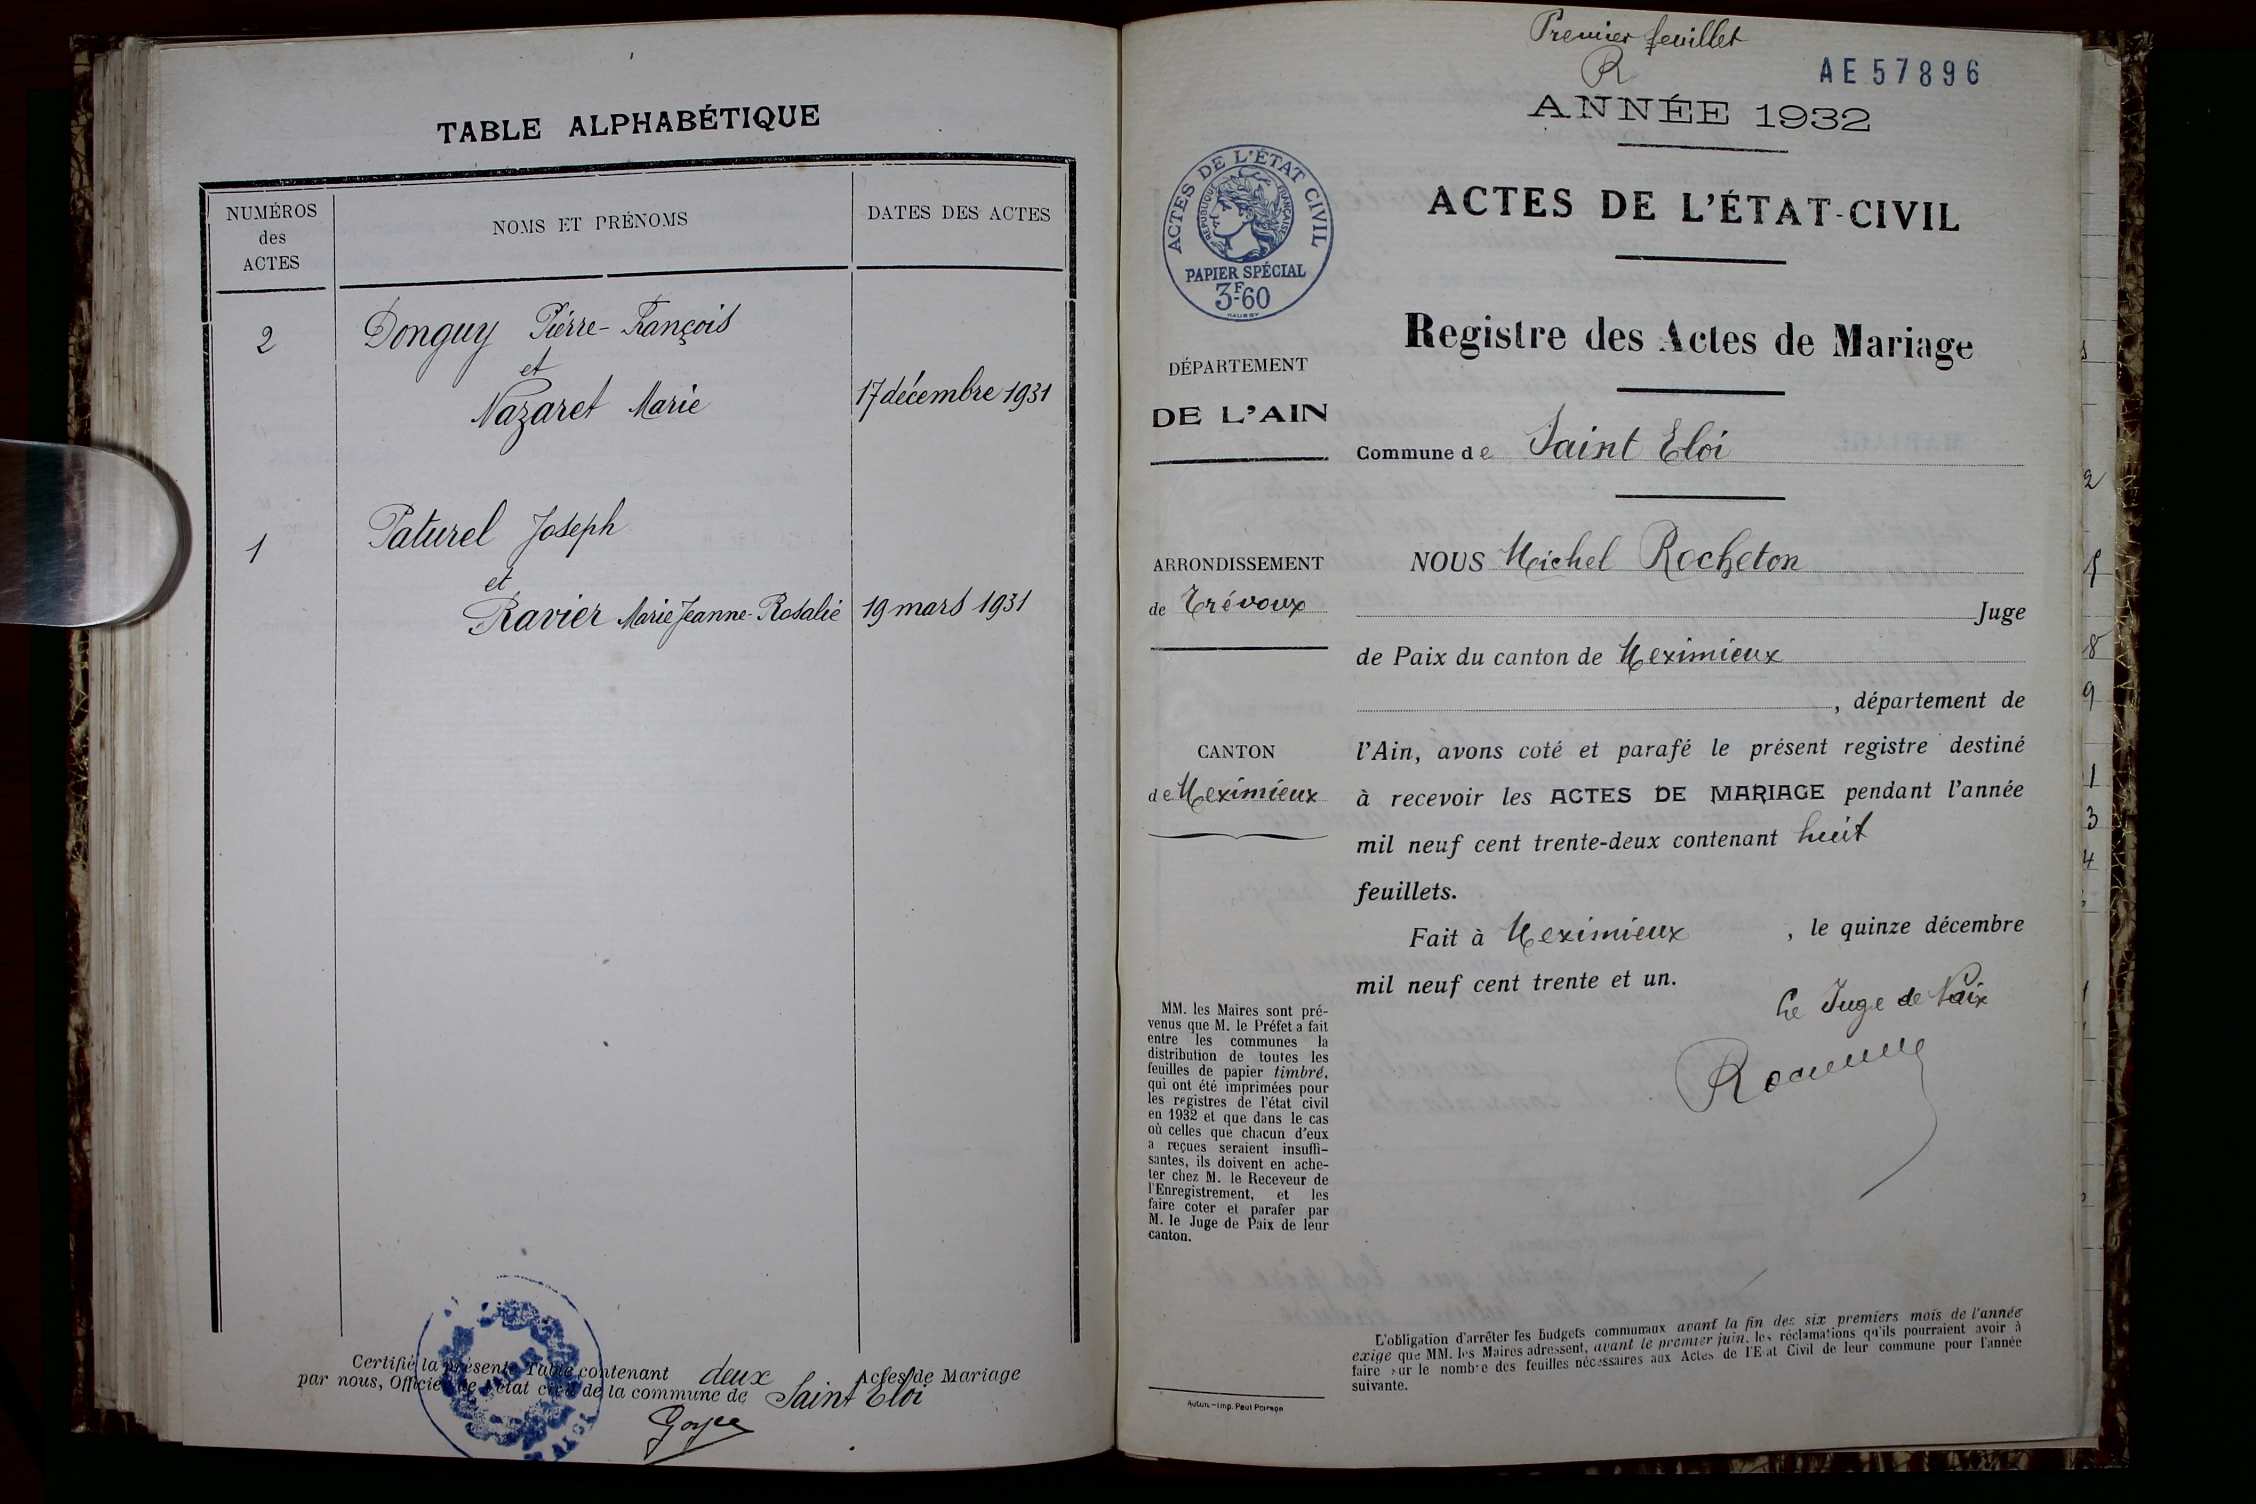 TABLE ALPHABÉTIQUE
NUMÉROS
des
ACTES
NOMS ET PRÉNOMS
DATES DES ACTES
2
Donguy Pierre-François
et
Nazaret Marie
17 décembre 1931
1
Paturel Joseph
et
Ravier Marie Jeanne-Rosalie
19 mars 1931
Certifié la présente Table contenant deux Actes de Mariage
par nous, Officier de l'état civil de la commune de Saint Eloi
Premier feuillet
R
AE 57896
ANNÉE 1932
ACTES DE L'ÉTAT CIVIL
RÉPUBLIQUE FRANÇAISE
PAPIER SPÉCIAL
3F-60
ACTES DE L'ÉTAT-CIVIL
Registre des Actes de Mariage
DÉPARTEMENT
DE L'AIN
Commune de Saint Eloi
ARRONDISSEMENT
de Trévoux
CANTON
de Meximieux
NOUS Michel Rocheton
Juge
de Paix du canton de Meximieux
, département de
l'Ain, avons coté et parafé le présent registre destiné
à recevoir les ACTES DE MARIAGE pendant l'année
mil neuf cent trente-deux contenant huit
feuillets.
Fait à Meximieux , le quinze décembre
mil neuf cent trente et un.
Le Juge de Paix
MM. les Maires sont pré-
venus que M. le Préfet a fait
entre les communes la
distribution de toutes les
feuilles de papier timbré,
qui ont été imprimées pour
les registres de l'état civil
en 1932 et que dans le cas
où celles que chacun d'eux
a reçues seraient insuffi-
santes, ils doivent en ache-
ter chez M. le Receveur de
l'Enregistrement, et les
faire coter et parafer par
M. le Juge de Paix de leur
canton.
L'obligation d'arrêter les budgets communaux avant la fin des six premiers mois de l'année
exige que MM. les Maires adressent, avant le premier juin, les réclamations qu'ils pourraient avoir à
faire sur le nombre des feuilles nécessaires aux Actes de l'Etat Civil de leur commune pour l'année
suivante.
Autun.—Imp. Paul Poirson